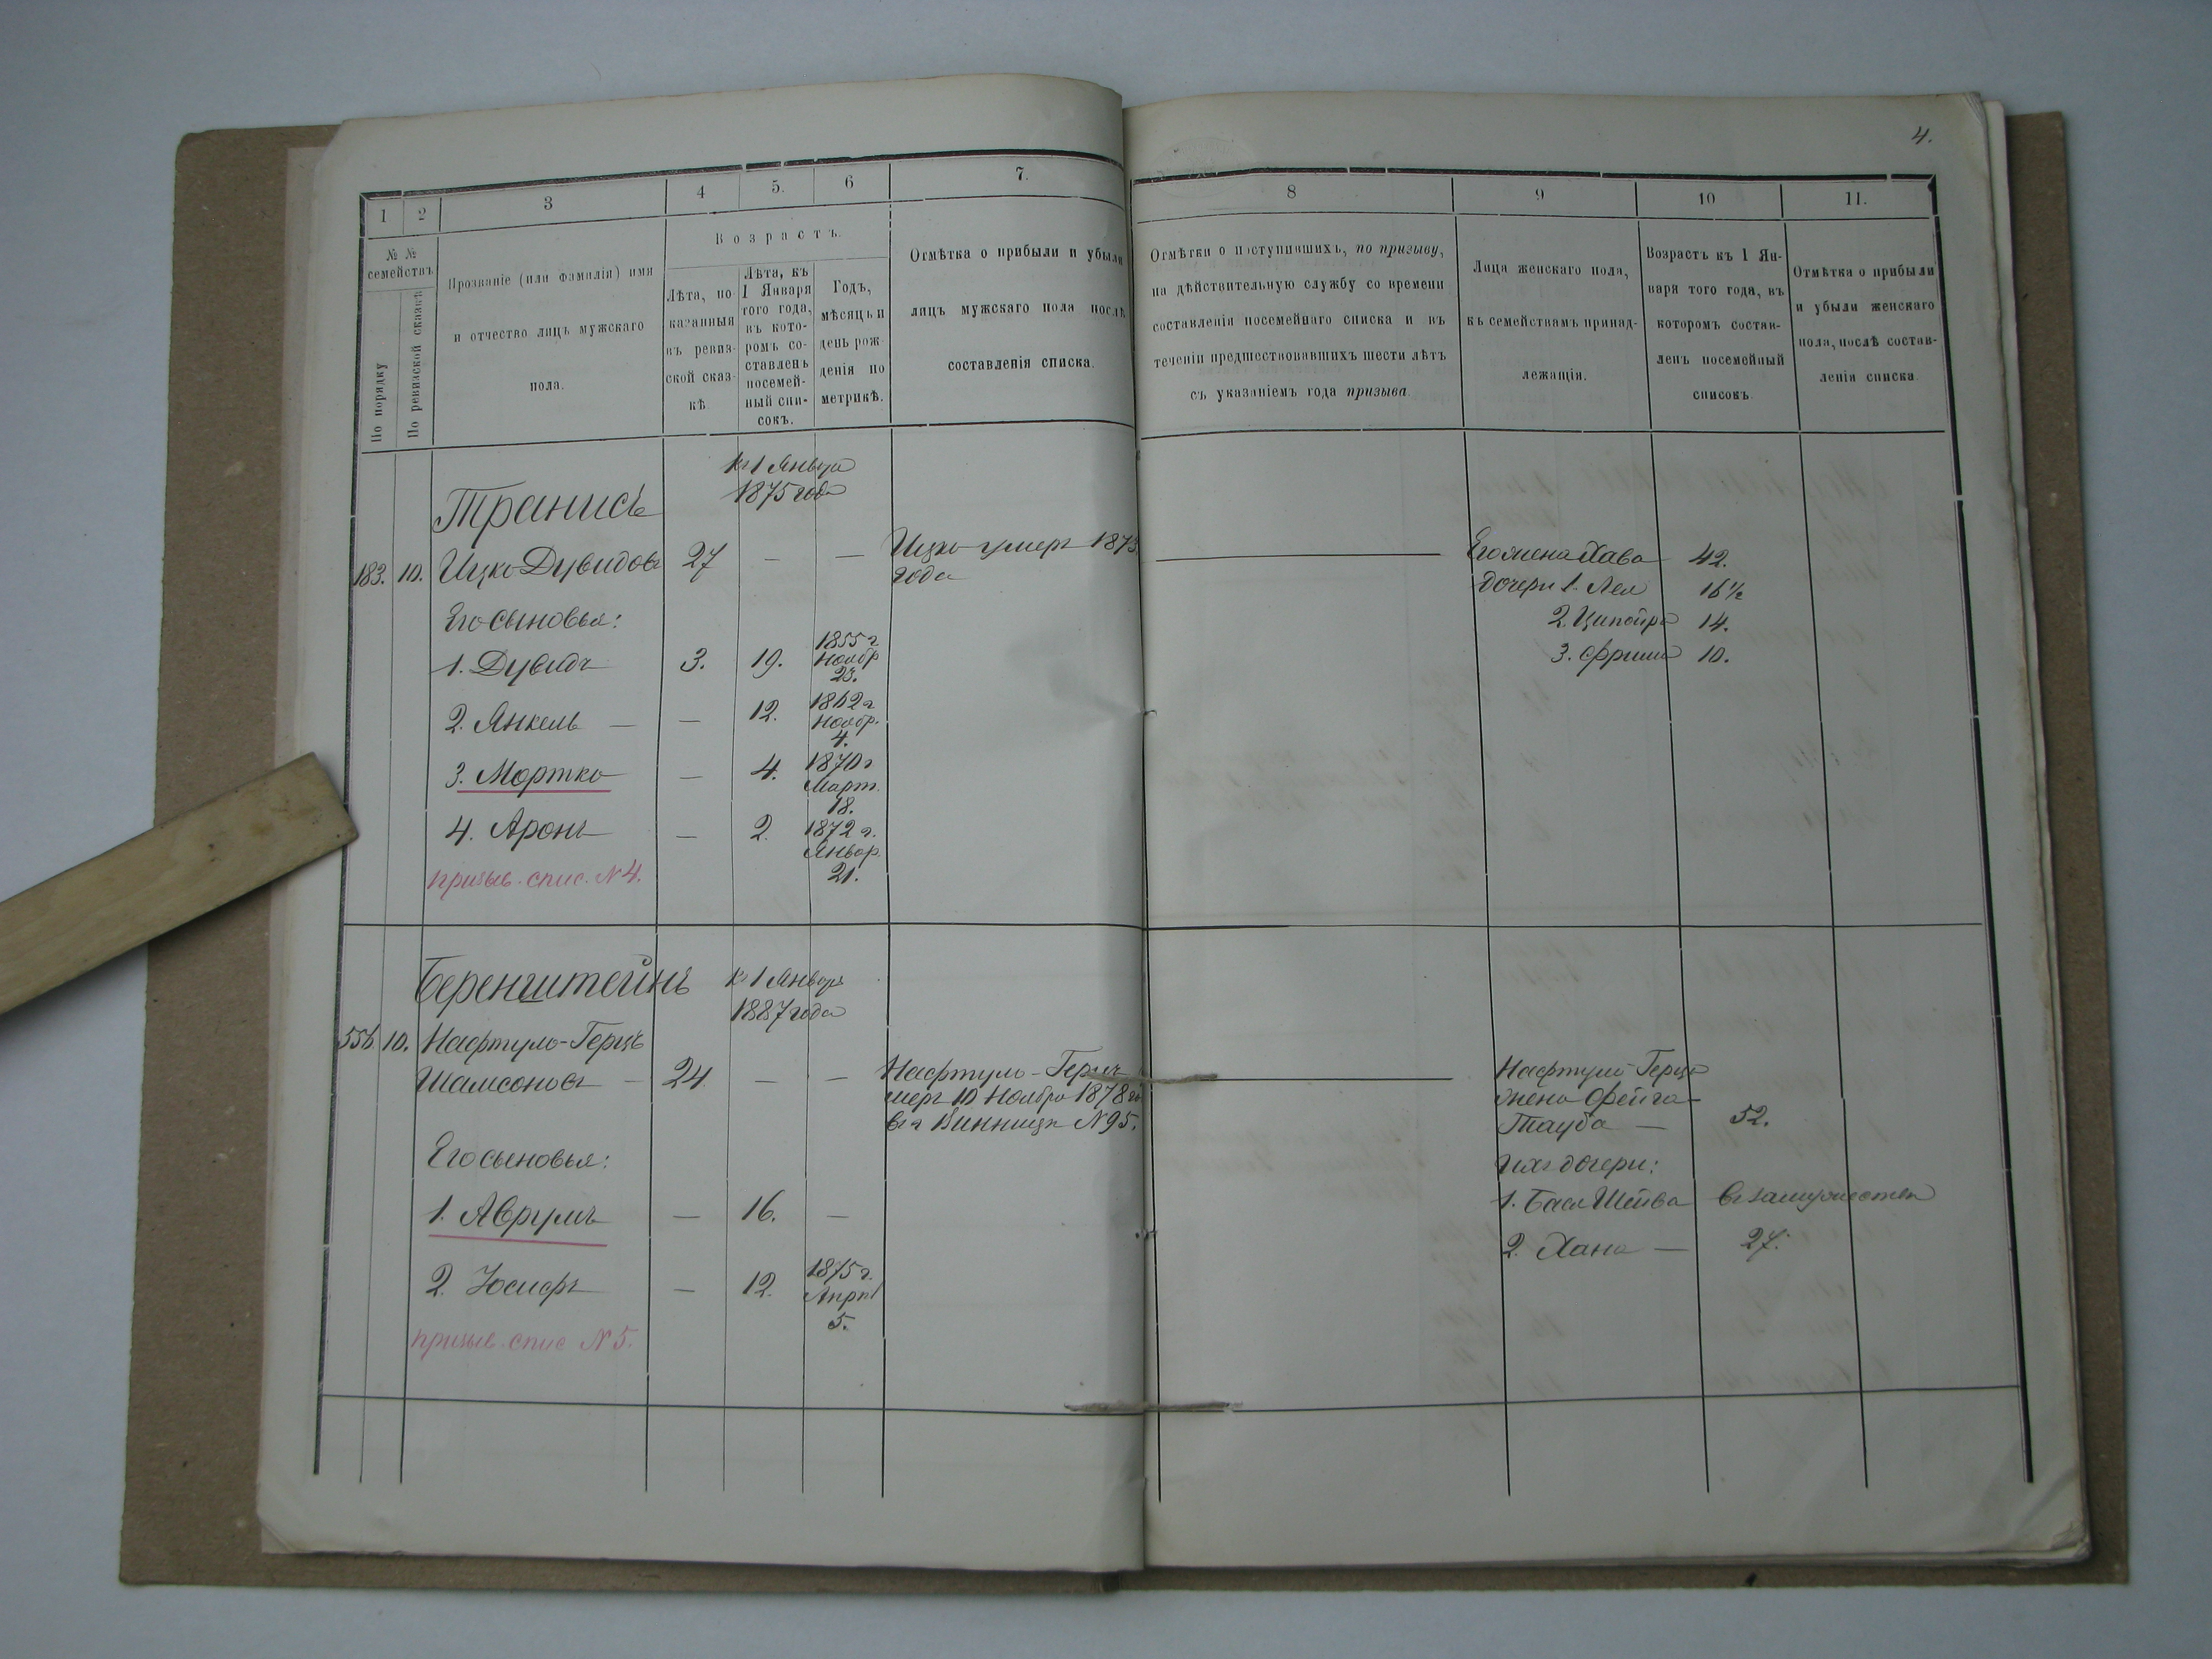 4.
1
2
3
4
5.
6
7.
8
9
10
11.
№ №
семействъ
По порядку
По ревизской сказкѣ
Прозваніе (или фамилія) имя
и отчество лицъ мужскаго
пола.
Возрастъ.
Лѣта, по-
казанныя
въ ревиз-
ской сказ-
кѣ
Лѣта, къ
1 Января
того года,
въ кото-
ромъ со-
ставленъ
посемей-
ный спи-
сокъ.
Годъ,
мѣсяцъ и
день рож-
денія по
метрикѣ.
Отмѣтка о прибыли и убыли
лицъ мужскаго пола послѣ
составленія списка.
Отмѣтки о поступившихъ, по призыву,
на дѣйствительную службу со времени
составленія посемейнаго списка и въ
теченіи предшествовавшихъ шести лѣтъ
съ указаніемъ года призыва.
Лица женскаго пола,
къ семействамъ принад-
лежащія.
Возрастъ къ 1 Ян-
варя того года, въ
которомъ состав-
ленъ посемейный
списокъ.
Отмѣтка о прибыли
и убыли женскаго
пола, послѣ состав-
ленія списка.
Къ 1 Января
1875 года
Транись
183. 10. Ицко Дувидовъ 27 — —
Ицко умеръ 187
года
Его жена Хава 42.
дочери 1. Лея 16½
2. Ципойра 14.
3. Фрима 10.
Его сыновья:
1. Дувидъ 3. 19. 1855 г
Ноябр
23.
2. Янкель — — 12. 1862 г
Ноябр.
4.
3. Мортко — 4. 1870 г
Март.
18.
4. Аронъ — 2. 1872 г.
Январ.
21.
призыв. спис. № 4.
Беренштейнъ
къ 1 Января
1887 года
556. 10. Нафтуло-Герцъ
Шамсоновъ — 24 — —
Нафтуло-Герцъ
умеръ 10 Ноября 1878 г
въ г Винницѣ № 95.
Нафтули Герца
жена Фейга-
Тауба — 52.
Ихъ дочери:
1. Бася Шейва въ замужествѣ
2. Хана — 27.
Его сыновья:
1. Аврумъ — 16. —
2. Юсифъ — 12. 1875 г.
Апрѣл
5.
призыв. спис № 5.